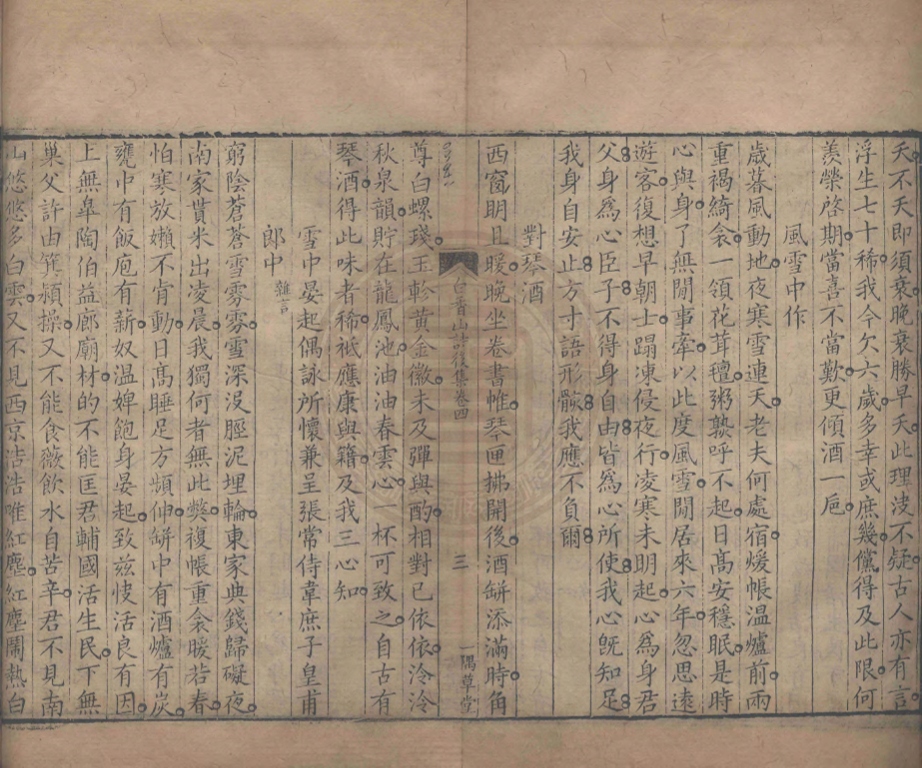 夭不夭即須衰晚衰勝早夭此理決不疑古人亦有言
浮生七十稀我今欠六歲多幸或庶幾儻得及此限何
羨榮啓期當喜不當歎更傾酒一巵
風雪中作
歲暮風動地夜寒雪連天老夫何處宿煖帳溫爐前兩
重褐綺衾一領花茸氊粥熟呼不起日高安穩眠是時
心與身了無閒事牽以此度風雪閒居來六年忽思遠
遊客復想早朝士蹋凍侵夜行凌寒未明起心爲身君
父身爲心臣子不得身自由皆爲心所使我心旣知足
我身自安止方寸語形骸我應不負爾
對琴酒
西窗明且暖晚坐卷書帷琴匣拂開後酒缾添滿時角
白香山詩後集卷四
三
一隅草堂
尊白螺琖玉軫黄金徽未及彈與酌相對已依依泠泠
秋泉韻貯在龍鳳池油油春雲心一杯可致之自古有
琴酒得此味者稀祗應康與籍及我三心知
雪中晏起偶詠所懷兼呈張常侍韋庶子皇甫
郎中 雜言
窮陰蒼蒼雪雰雰雪深沒脛泥埋輪東家典錢歸礙夜
南家貰米出凌晨我獨何者無此弊複帳重衾暖若春
怕寒放嬾不肯動日高睡足方頻伸缾中有酒爐有炭
甕中有飯庖有薪奴溫婢飽身晏起致兹快活良有因
上無皐陶伯益廊廟材的不能匡君輔國活生民下無
巢父許由箕潁操又不能食薇飲水自苦辛君不見南
山悠悠多白雲又不見西京浩浩唯紅塵紅塵鬧熱白